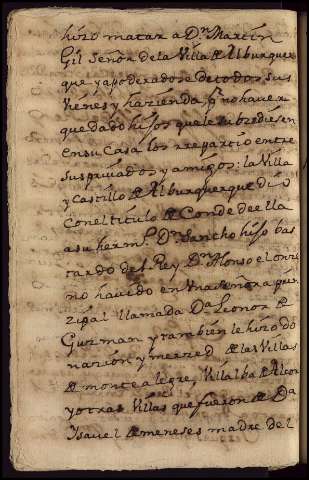 hizo matar a Dn. Martin
Gil Señor de la Villa de Alburquer
que y apoderadose de todos sus
vienes y hazienda, pr. no haver
quedado hijos que le subzediesen
en su Casa los rrepartio entre
sus priuados y amigos: la Villa
y castillo de Alburquerque dio
con el titulo de Conde de ella
a su hermo. Dn. Sancho hijo bas
tardo del Rey Dn. Alonso el onze
no havido en una señora prin
zipal llamada Da. Leonor de
Guzman y tambien le hizo do
nazion y merzed de las Villas
de montealegre, Villalba de Alcor
y otras Villas que fueron de Da
Ysavel de meneses madre del